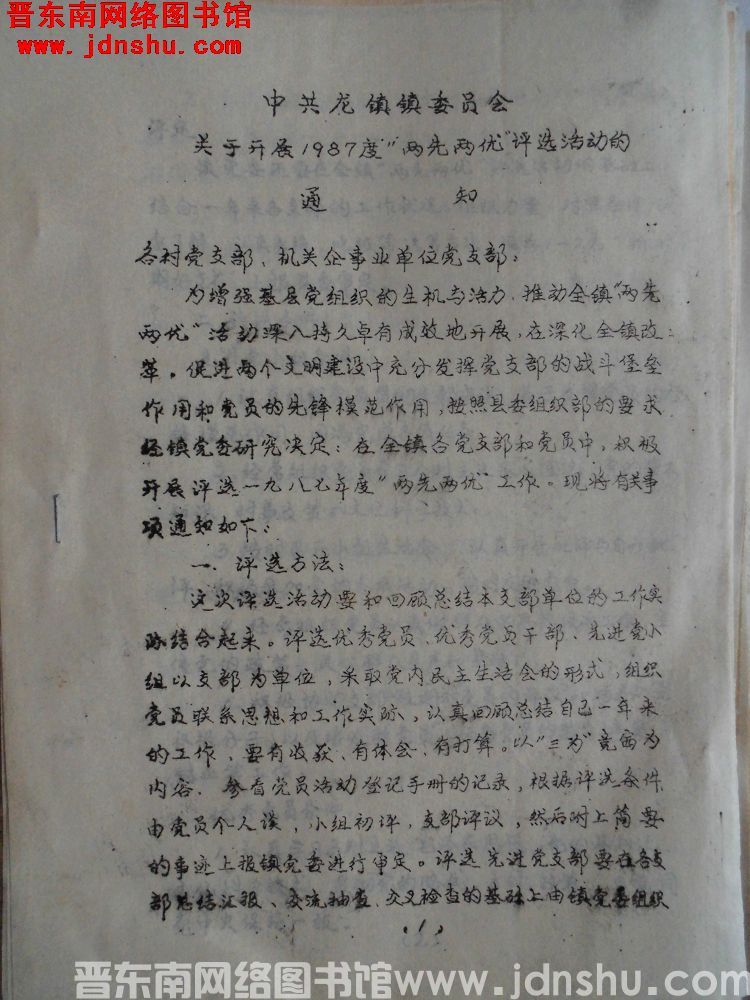 晋东南网络图书馆
www.jdnshu.com
中共龙镇镇委员会
关于开展1987度"两先两优"评选活动的
通 知
各村党支部、机关企事业单位党支部：
为增强基层党组织的生机与活力，推动全镇"两先
两优"活动深入持久卓有成效地开展，在深化全镇改
革，促进两个文明建设中充分发挥党支部的战斗堡垒
作用和党员的先锋模范作用，按照县委组织部的要求
经镇党委研究决定：在全镇各党支部和党员中，积极
开展评选一九八七年度"两先两优"工作。现将有关事
项通知如下：
一、评选方法：
这次评选活动要和回顾总结本支部单位的工作实
际结合起来。评选优秀党员、优秀党员干部、先进党小
组以支部为单位，采取党内民主生活会的形式，组织
党员联系思想和工作实际，认真回顾总结自己一年来
的工作，要有收获、有体会、有打算。以"三为"竞赛为
内容，参看党员活动登记手册的记录，根据评选条件
由党员个人谈，小组初评，支部评议，然后附上简要
的事迹上报镇党委进行审定。评选先进党支部要在各支
部总结汇报、交流抽查、交叉检查的基础上由镇党委组织
1
晋东南网络图书馆www.jdnshu.com